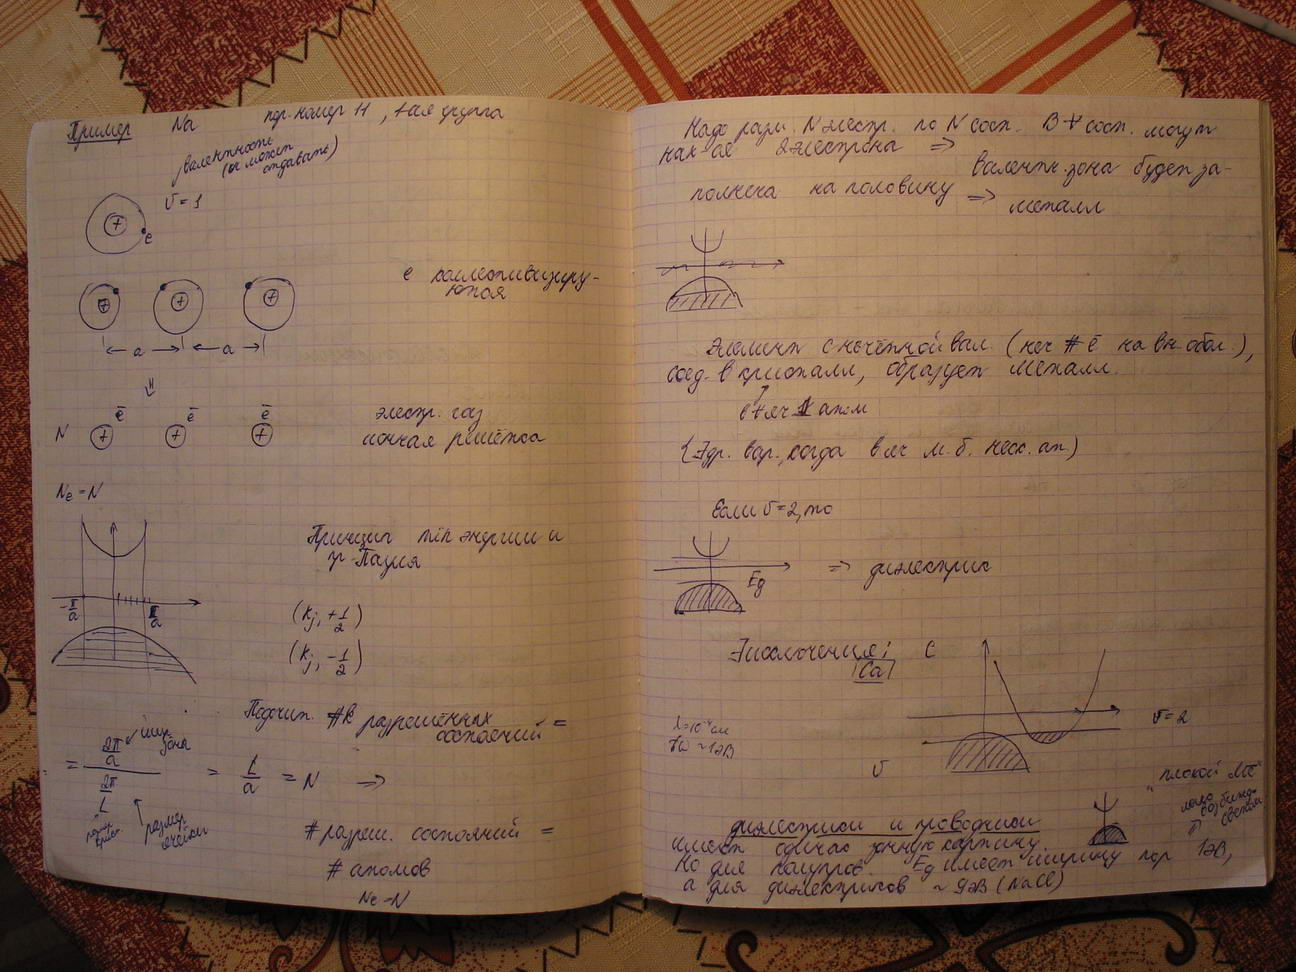 Пример Na пор. номер 11, 1-ая группа
валентность
(e может
отдавать)
v = 1
+ e
+ + +
e коллективизиру-
ются
a a
⇓
ē ē ē
N + + +
электр. газ
ионная решётка
Nē = N
Принцип min энергии и
пр. Паули
-π/a π/a
(kj, +1/2)
(kj, -1/2)
Подсчит. #k разрешённых
состояний =
= (2π/a)/(2π/L) = L/a = N ⇒
шир.
зоны
размер
ячейки
# разреш. состояний =
# атомов
Nē = N
Надо разм. N электр. по N сост. В 1 сост. могут
нах-ся 2 электрона ⇒
валентн. зона будет за-
полнена на половину ⇒
металл
Элемент с нечётной вал. (неч # ē на вн. обол.),
соед. в кристалл, образует металл.
в 1 яч 1 атом
(Эдр. вар., когда в яч м.б. неск. ат)
Если v = 2, то
Eg
⇒ диэлектрик
Исключения: C
Ca
λ = 10⁻⁴ см
ħω ~ 1эВ
v = 2
v
"плохой Ме"
диэлектрики и проводники
имеют одинак зонную картину.
Но для полупров. Eg имеет ширину пор 1эВ,
а для диэлектриков ~ 9эВ (NaCl)
легко
возбужд.
светом